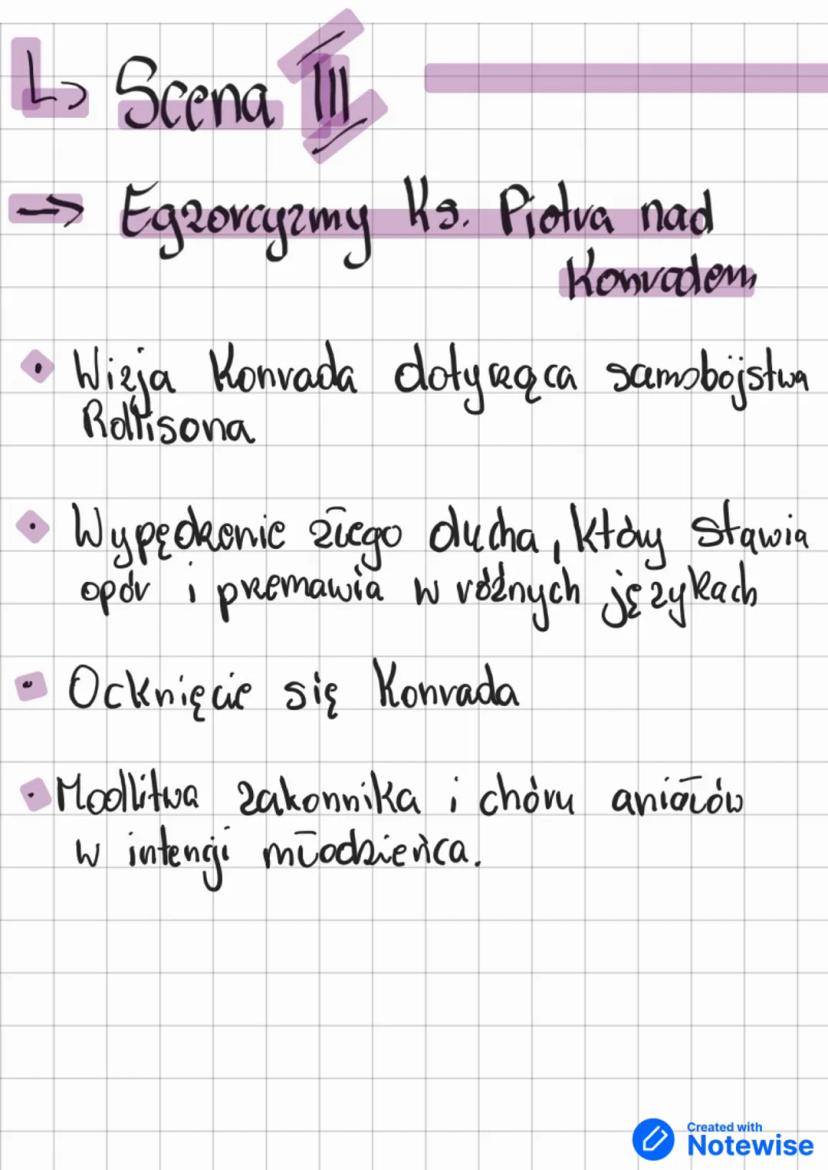 ↳ Scena III
→ Egzorcyzmy Ks. Piotra nad
Konradem
• Wizja Konrada dotycząca samobójstwa
Rollisona
• Wypędzenie złego ducha, który stawia
opór i przemawia w różnych językach
• Ocknięcie się Konrada
• Modlitwa zakonnika i chóru aniołów
w intencji młodzieńca.
Created with
Notewise